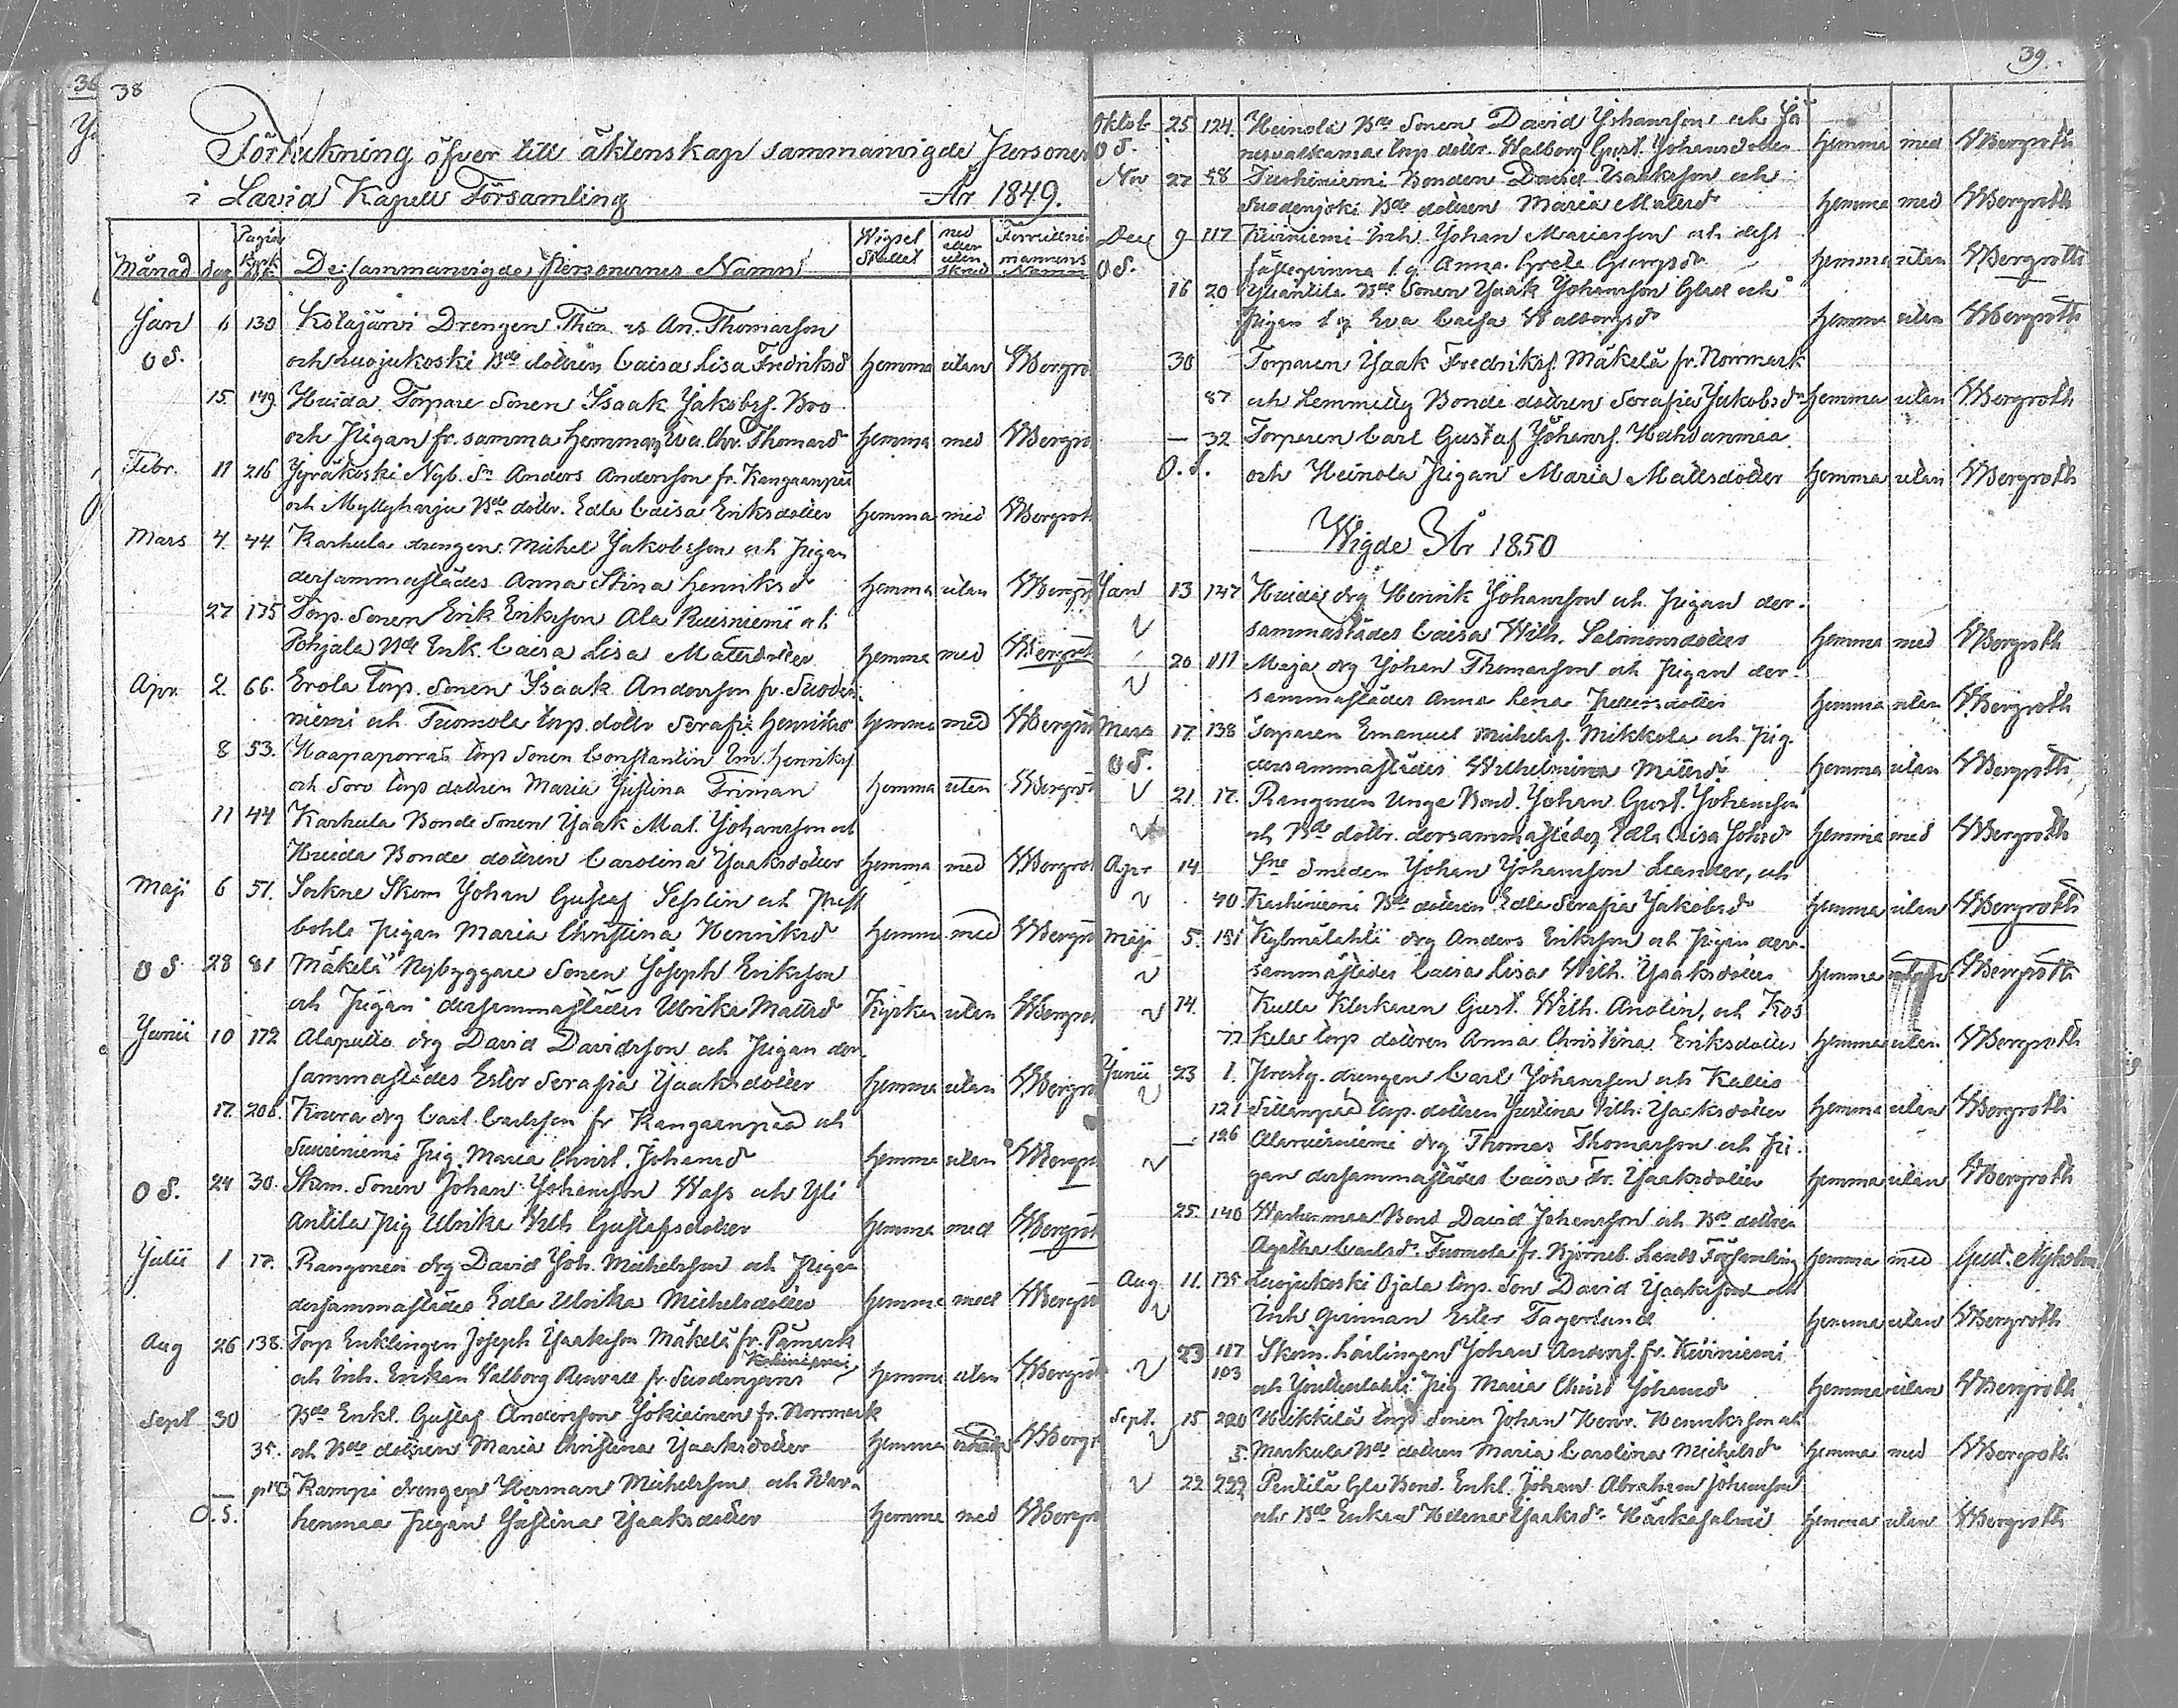 38
Förteckning öfver till äktenskap sammanvigde Personer
i Lavia Kapell Församling År 1849.
Månad dag Pagin Kyrk De sammanvigde Personernes Namn Wigsel Stället med eller utan Förrättnings mannens Namn
Jan 6 130 Kolajärvi Drengen Thomasson
O S. och Luojukoski Bde dottren Caisa Lisa Fredriksd hemma utan Bergro
15 149. Huida Torpare Sonen Isaak Jakobss. Boo
och Pigan fr. samma hemman Eva Chr. Thomasd hemma med Bergro
Febr. 11 216 Jyräkoski Nyb. Sn Anders Andersson fr. Kangaanpää
och Myllyharju Bde dottr. Edla Caisa Eriksdotter hemma med Bergroth
Mars 4 44 Karhula drengen Michel Jakobsson och Pigan
dersammastädes Anna Stina Henriksd hemma utan Bergr
27 175 Torp. Sonen Erik Eriksson Ala Ruisniemi och
Pohjala Bde Enk. Caisa Lisa Mattsdotter hemma med Bergroth
Apr. 2. 66. Erola Torp. Sonen Isaak Andersson fr. Suoden
niemi och Tuomola torp. dottr Serafia Henriksd hemma med Bergroth
8 53. Haapaporras torp Sonen Constantin Em. Henrikss
och Soro torp dottren Maria Justina Friman hemma utan Bergroth
11 44 Karhula Bonde Sonen Isaak Mat. Johansson och
Huida Bonde dottren Carolina Isaaksdotter hemma med Bergroth
Maji 6 51. Sockne Skom Johan Gustaf Sesslin och Prest
bohls Pigan Maria Christina Henriksd hemma med Bergro
O S 28 81 Mäkelä Nybyggare Sonen Joseph Eriksson
och Pigan dersammastädes Ulrika Mattsd Kyrkan utan Bergrot
Junii 10 172 Alapullo drg David Davidsson och Pigan der
sammastädes Ester Serafia Isaaksdotter hemma utan Bergro
17. 208. Koura drg Carl Carlsson fr Kangaanpää och
Suuriniemi Pig. Maria Christ. Johansd hemma utan Bergro
O S. 24 30. Skom. Sonen Johan Johansson Wass och Yli
Antila Pig Ulrika Wilh Gustafsdotter hemma med Bergrot
Julii 1 17. Rangonen drg David Joh. Michelsson och Pigan
dersammastädes Edla Ulrika Michelsdotter hemma med Bergro
Aug 26 138. Torp Enklingen Joseph Isaaksson Mäkelä fr. Påmark
och Inh. Enkan Valborg Renvall fr. hemma utan Bergro
Sept 30 Bde Enkl. Gustaf Andersson Jokiainen fr. Norrmark
35. och Bde dottren Maria Christina Isaaksdotter hemma Bergr
— p143 Kampi drengen Herman Michelsson och War
O.S. henmaa Pigan Justina Isaaksdotter hemma med Bergro
39.
Oktob 25 124. Heinola Bde Sonen David Johansson och
O S. torp dottr. Walborg Gust. Johansdotter hemma med Bergroth
Nov 27 58 Bonden David Isaaksson och
Suodenjoki Bde dottren Maria Mattsd hemma med Bergroth
Dec 9 117 Kiviniemi Inh. Johan Mariasson och dess
O S. fästeqvinna l. q. Anna Greta Georgsd hemma utan Bergroth
16 20 Yliantila Bde Sonen Isaak Johansson Glad och
Pigan l q Eva Caisa Walborgsd hemma utan Bergroth
30 Torparen Isaak Fredrikss. Mäkelä fr. Norrmark
87 och Lemmetty Bonde dottren Serafia Jakobsd hemma utan Bergroth
— 32 Torparen Carl Gustaf Johanss.
O. S. och Heinola Pigan Maria Mattsdotter hemma utan Bergroth
Wigde År 1850
Jan 13 147 Huida drg Henrik Johansson och Pigan der
sammastädes Caisa Wilh. Salomonsdotter hemma med Bergroth
20 111 Maja drg Johan Thomasson och Pigan der
sammastädes Anna Lena Pettersdotter hemma utan Bergroth
Mars 17 138 Torparen Emanuel Michelss. Mikkola och Pig.
O S. dersammastädes Wilhelmina Mattsd hemma utan Bergroth
21. 17. Rangonen Unge Bond. Johan Gust. Johansson
och Bde dottr. dersammastädes Edla Caisa Johsd hemma med Bergroth
Apr 14 Sne Smeden Johan Johansson Leander, och
40 Bde dottren Edla Serafia Jakobsd hemma utan Bergroth
Maji 5. 151 Kylmälahti drg Anders Eriksson och Pigan der
sammastädes Caisa Lisa Wilh. Isaaksdotter hemma Bergroth
14. Kulla Klockaren Gust. Wilh. Anolin, och Kos
77 kela torp dottren Anna Christina Eriksdotter hemma utan Bergroth
Junii 23 1. Prestg. drengen Carl Johansson och Kallio
121 Sillanpää torp. dottren Justina Wilh. Isaaksdotter hemma utan Bergroth
— 126 Alaruisniemi drg Thomas Thomasson och Pi
gan dersammastädes Caisa Fr. Isaaksdotter hemma utan Bergroth
25. 140 Warhenmaa Bond David Johansson och Bde dottren
Agatha Carlsd. Tuomola fr. Björneb. Lands Församling hemma med Gust. Nyholm
Aug 11. 135 Luojukoski Ojala torp. Son David Isaaksson och
Inh qvinnan Ester Fagerlund hemma utan Bergroth
23 117 Skom. Lärlingen Johan Anderss. fr. Kiviniemi
103 och Pig Maria Christ Johansd hemma utan Bergroth
Sept. 15 220 Heikkilä torp Sonen Johan Henr. Henriksson och
5. Markula Bde dottren Maria Carolina Michelsd hemma med Bergroth
22 222 Pentilä Gla Bond. Enkl. Johan Abraham Johansson
och Bde Enkan Helena Isaaksd. Härkäsalmi hemma utan Bergroth